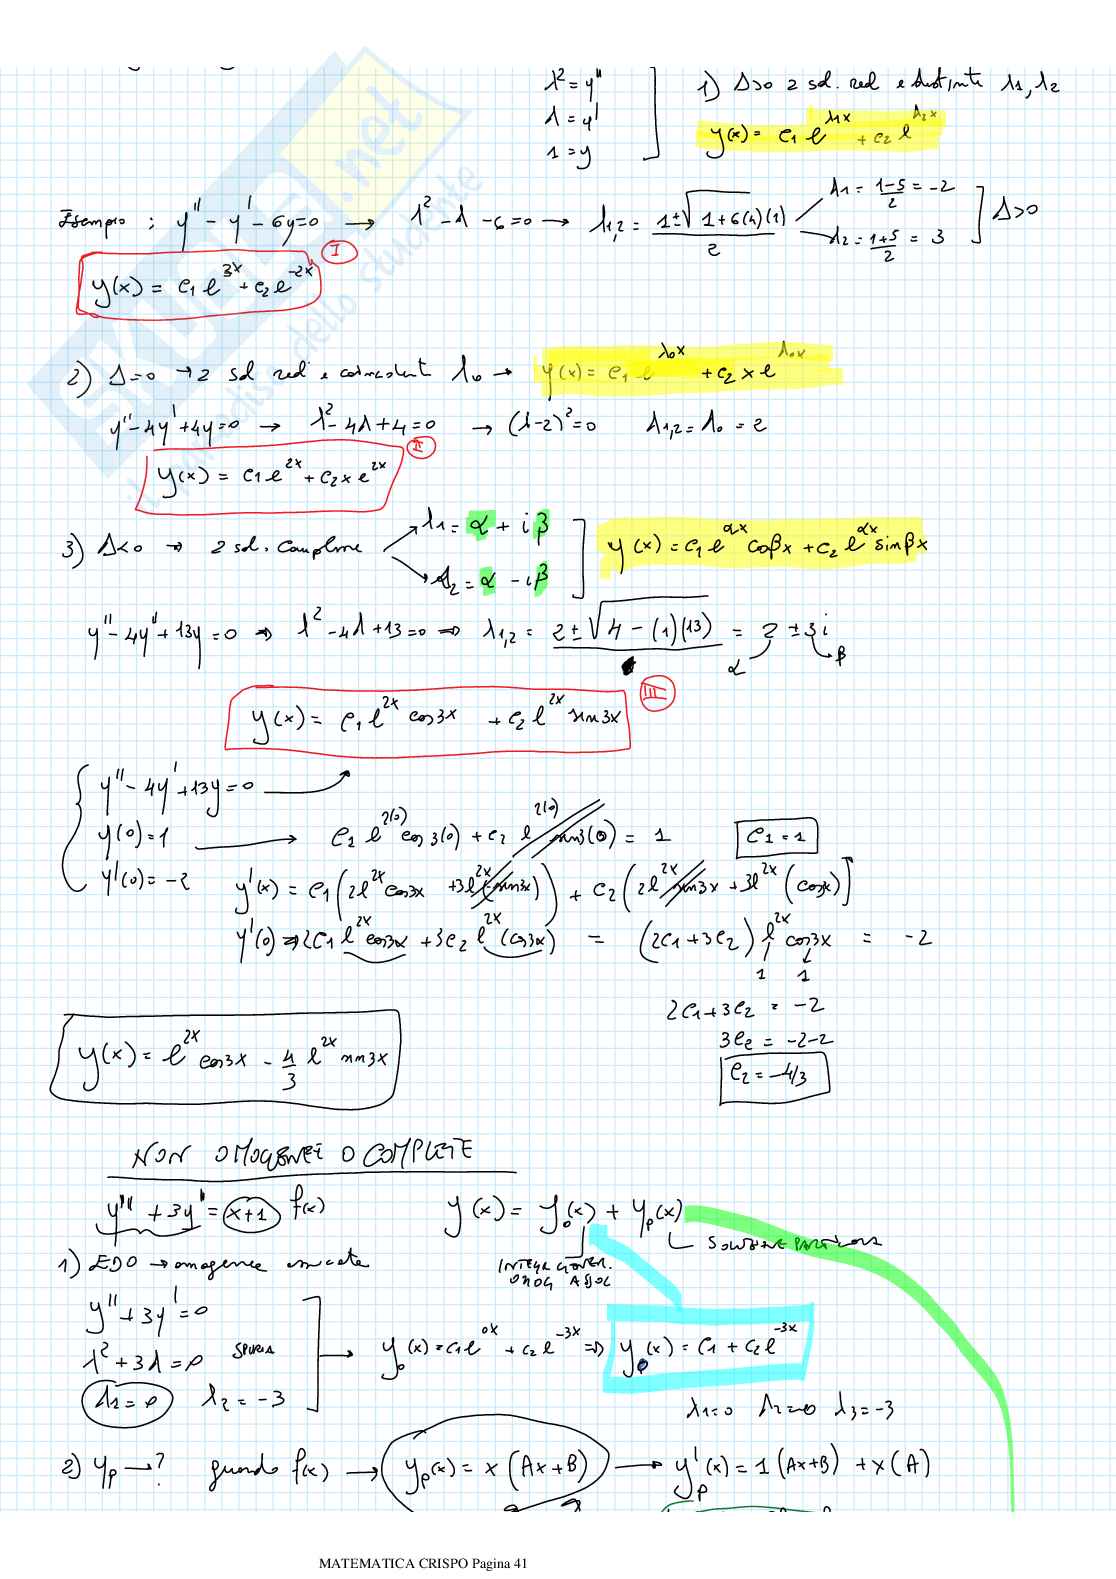 λ² = y''
λ = y'
1 = y
1) Δ>0 2 sol. reali e distinte λ1, λ2
y(x) = c1 e^λ1x + c2 e^λ2x
Esempio : y'' - y' - 6y = 0 → λ² - λ - 6 = 0 → λ1,2 = (1 ± √(1+6(4)(1)))/2
λ1 = (1-5)/2 = -2
λ2 = (1+5)/2 = 3
Δ>0
y(x) = c1 e^3x + c2 e^-2x
I
2) Δ=0 → 2 sol reali e coincidenti λ0 → y(x) = c1 e^λ0x + c2 x e^λ0x
y'' - 4y' + 4y = 0 → λ² - 4λ + 4 = 0 → (λ-2)² = 0 λ1,2 = λ0 = 2
y(x) = c1 e^2x + c2 x e^2x
II
3) Δ<0 → 2 sol. complesse
λ1 = α + iβ
λ2 = α - iβ
y(x) = c1 e^αx cosβx + c2 e^αx sinβx
y'' - 4y' + 13y = 0 ⇒ λ² - 4λ + 13 = 0 ⇒ λ1,2 = 2 ± √(4 - (1)(13)) = 2 ± 3i
α β
y(x) = c1 e^2x cos3x + c2 e^2x sin3x
III
y'' - 4y' + 13y = 0
y(0) = 1 → c1 e^2(0) cos 3(0) + c2 e^2(0) sin3(0) = 1 c1 = 1
y'(0) = -2
y'(x) = c1 (2e^2x cos3x + 3e^2x (-sin3x)) + c2 (2e^2x sin3x + 3e^2x (cosx))
y'(0) ⇒ 2c1 e^2x cos3x + 3c2 e^2x (cos3x) = (2c1 + 3c2) e^2x cos3x = -2
1 1
2c1 + 3c2 = -2
3c2 = -2-2
c2 = -4/3
y(x) = e^2x cos3x - 4/3 e^2x sin3x
NON OMOGENEE O COMPLETE
y'' + 3y' = x+1 f(x)
y(x) = y0(x) + yp(x)
SOLUZIONE PARTICOLARE
INTEGR GENER.
OMOG ASSOC
1) EDO → omogenea associata
y'' + 3y' = 0
λ² + 3λ = 0 SPURIA
λ1 = 0 λ2 = -3
y0(x) = c1 e^0x + c2 e^-3x ⇒ y0(x) = c1 + c2 e^-3x
λ1=0 λ2=0 λ3=-3
2) yp → ? guardo f(x) → yp(x) = x (Ax+B) → y'p(x) = 1 (Ax+B) + x(A)
MATEMATICA CRISPO Pagina 41
SKUOLA.net
il paradiso dello studente